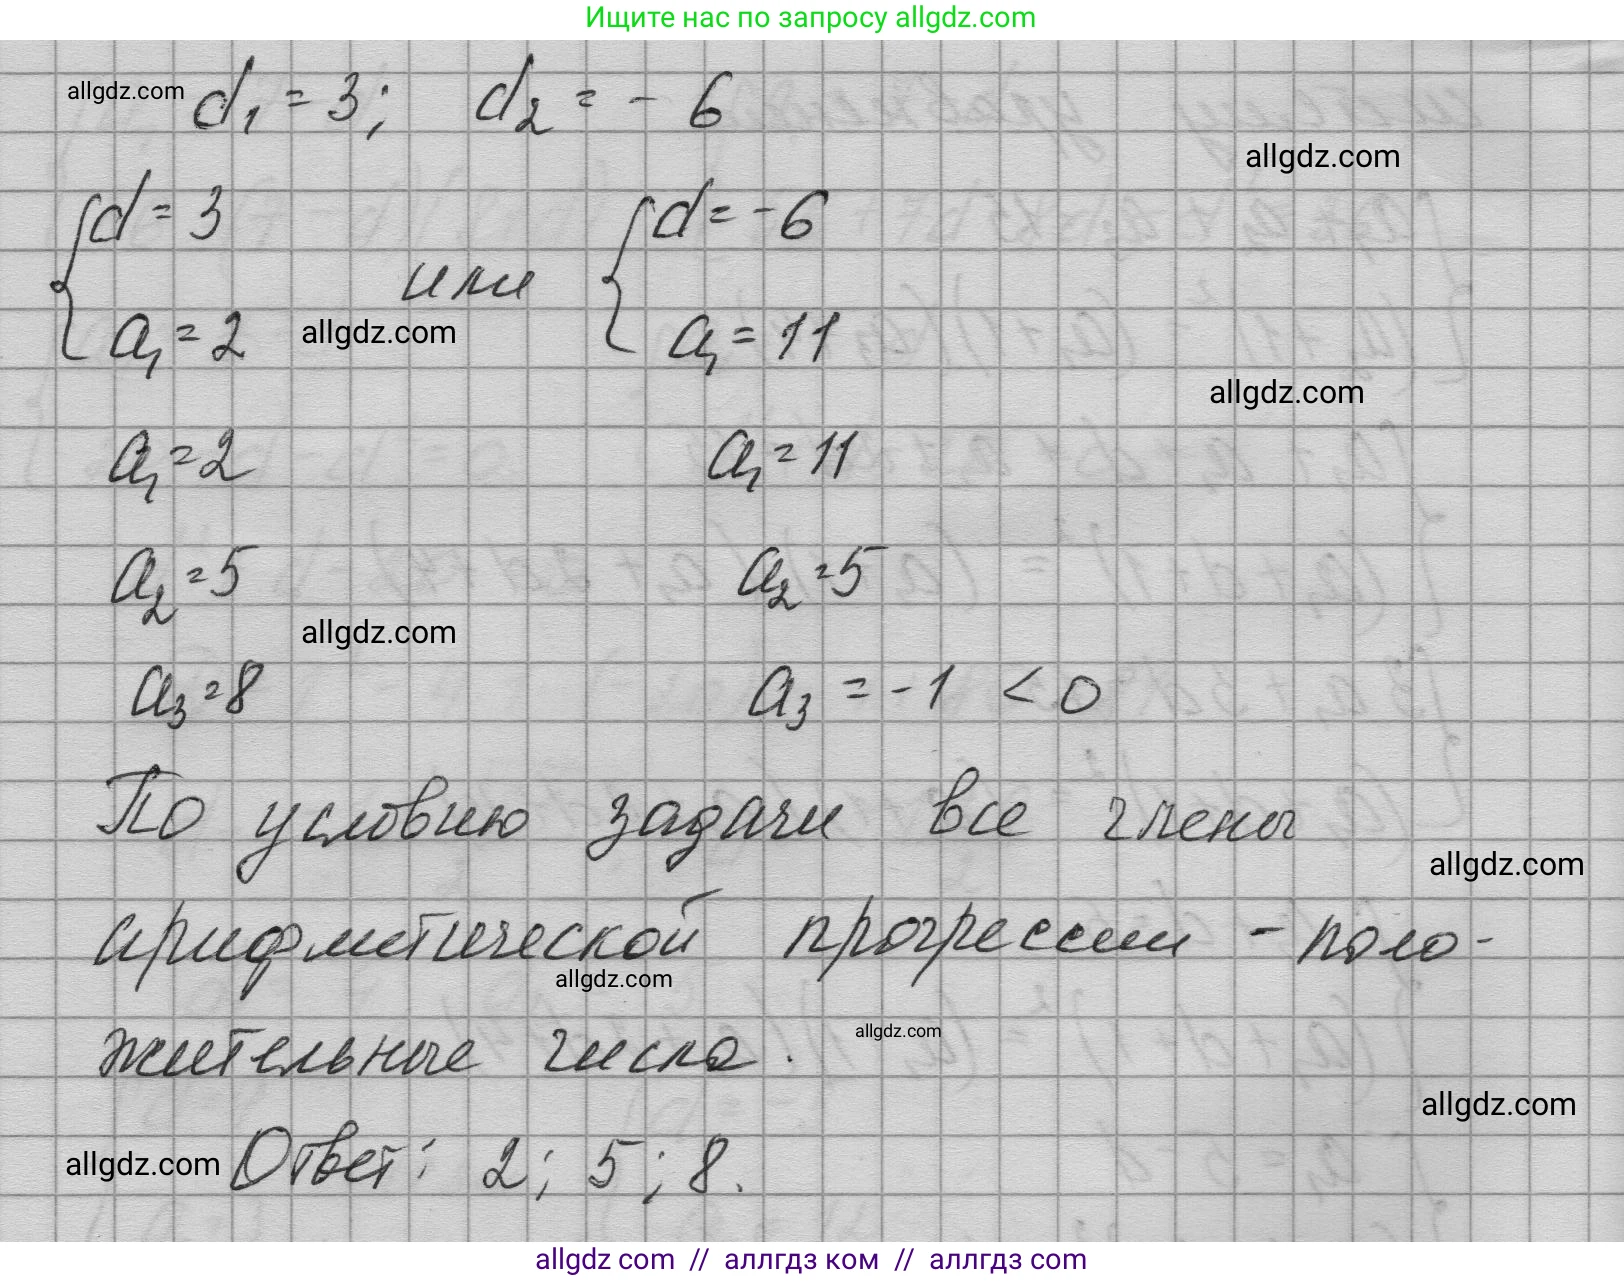 Ищите нас по запросу allgdz.com
allgdz.com d₁ = 3; d₂ = - 6
allgdz.com
{ d = 3 { d = -6
или
a₁ = 2 allgdz.com a₁ = 11
allgdz.com
a₁ = 2 a₁ = 11
a₂ = 5 a₂ = 5
allgdz.com
a₃ = 8 a₃ = -1 < 0
По условию задачи все члены
allgdz.com
арифметической прогрессии - поло-
allgdz.com
allgdz.com
жительные числа.
allgdz.com
allgdz.com Ответ: 2; 5; 8.
allgdz com // аллгдз ком // аллгдз com